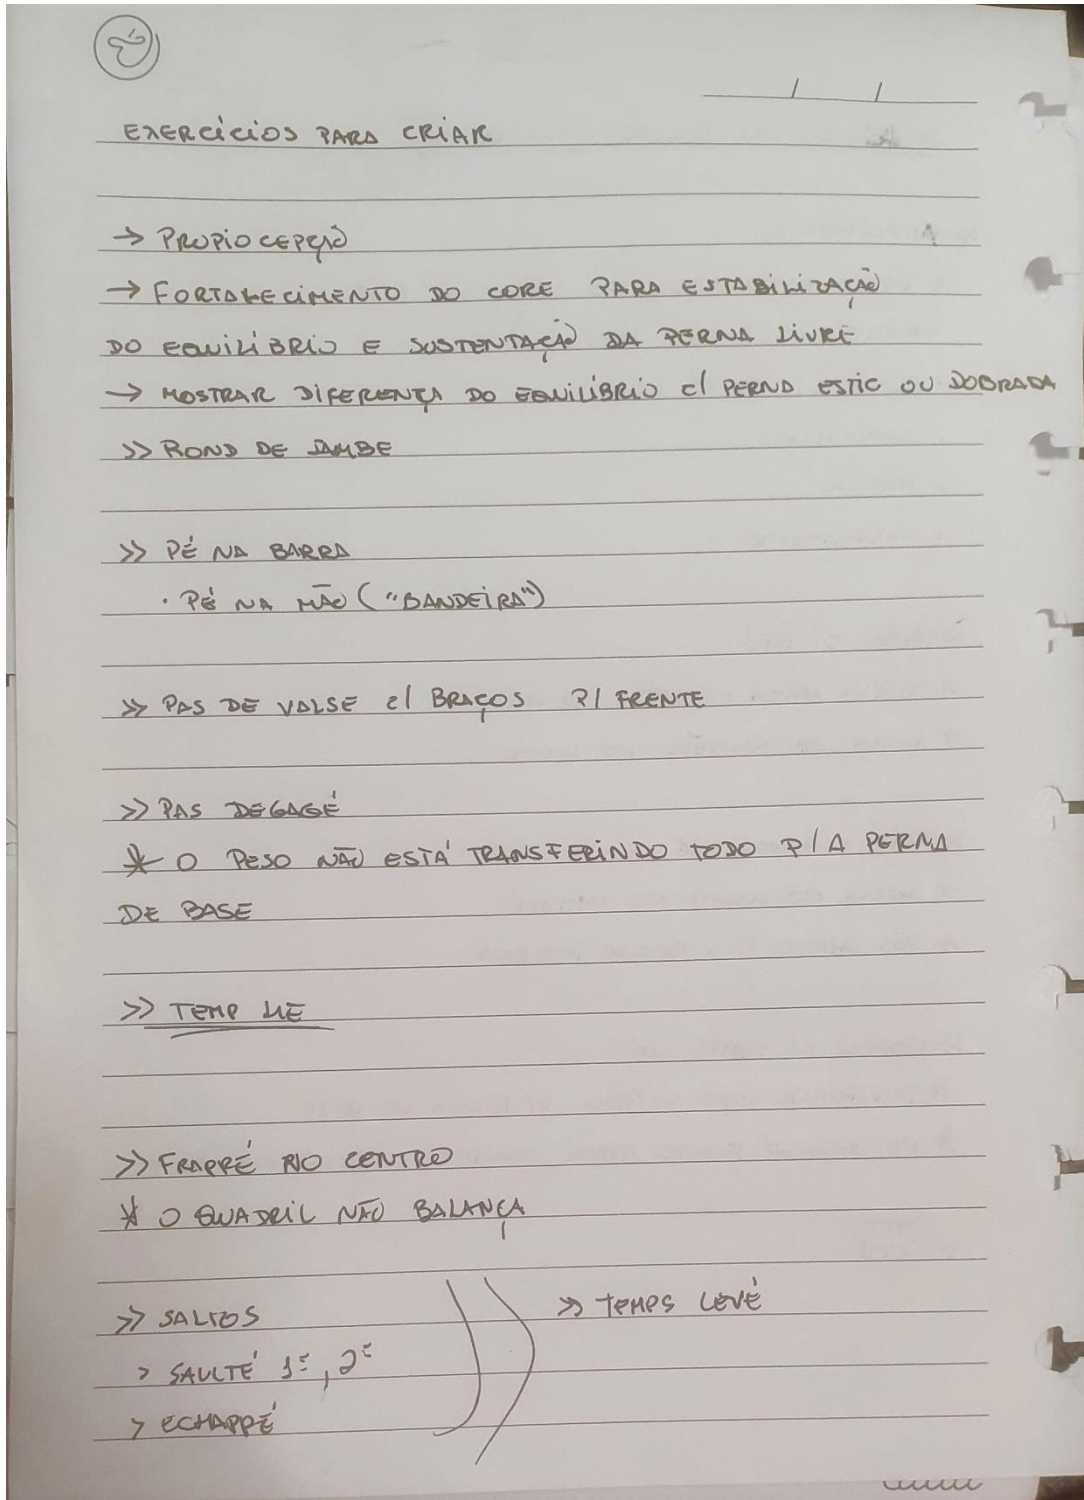 / /
EXERCÍCIOS PARA CRIAR
→ PROPIOCEPÇÃO
→ FORTALECIMENTO DO CORE PARA ESTABILIZAÇÃO
DO EQUILÍBRIO E SUSTENTAÇÃO DA PERNA LIVRE
→ MOSTRAR DIFERENÇA DO EQUILÍBRIO C/ PERNA ESTIC OU DOBRADA
>> ROND DE JAMBE
>> PÉ NA BARRA
· PÉ NA MÃO ("BANDEIRA")
>> PAS DE VALSE C/ BRAÇOS P/ FRENTE
>> PAS DEGAGÉ
* O PESO NÃO ESTÁ TRANSFERINDO TODO P/ A PERNA
DE BASE
>> TEMP LIE
>> FRAPPÉ NO CENTRO
* O QUADRIL NÃO BALANÇA
>> SALTOS
> SAULTÉ 1ª, 2ª
> ECHAPPÉ
>> TEMPS LEVÉ